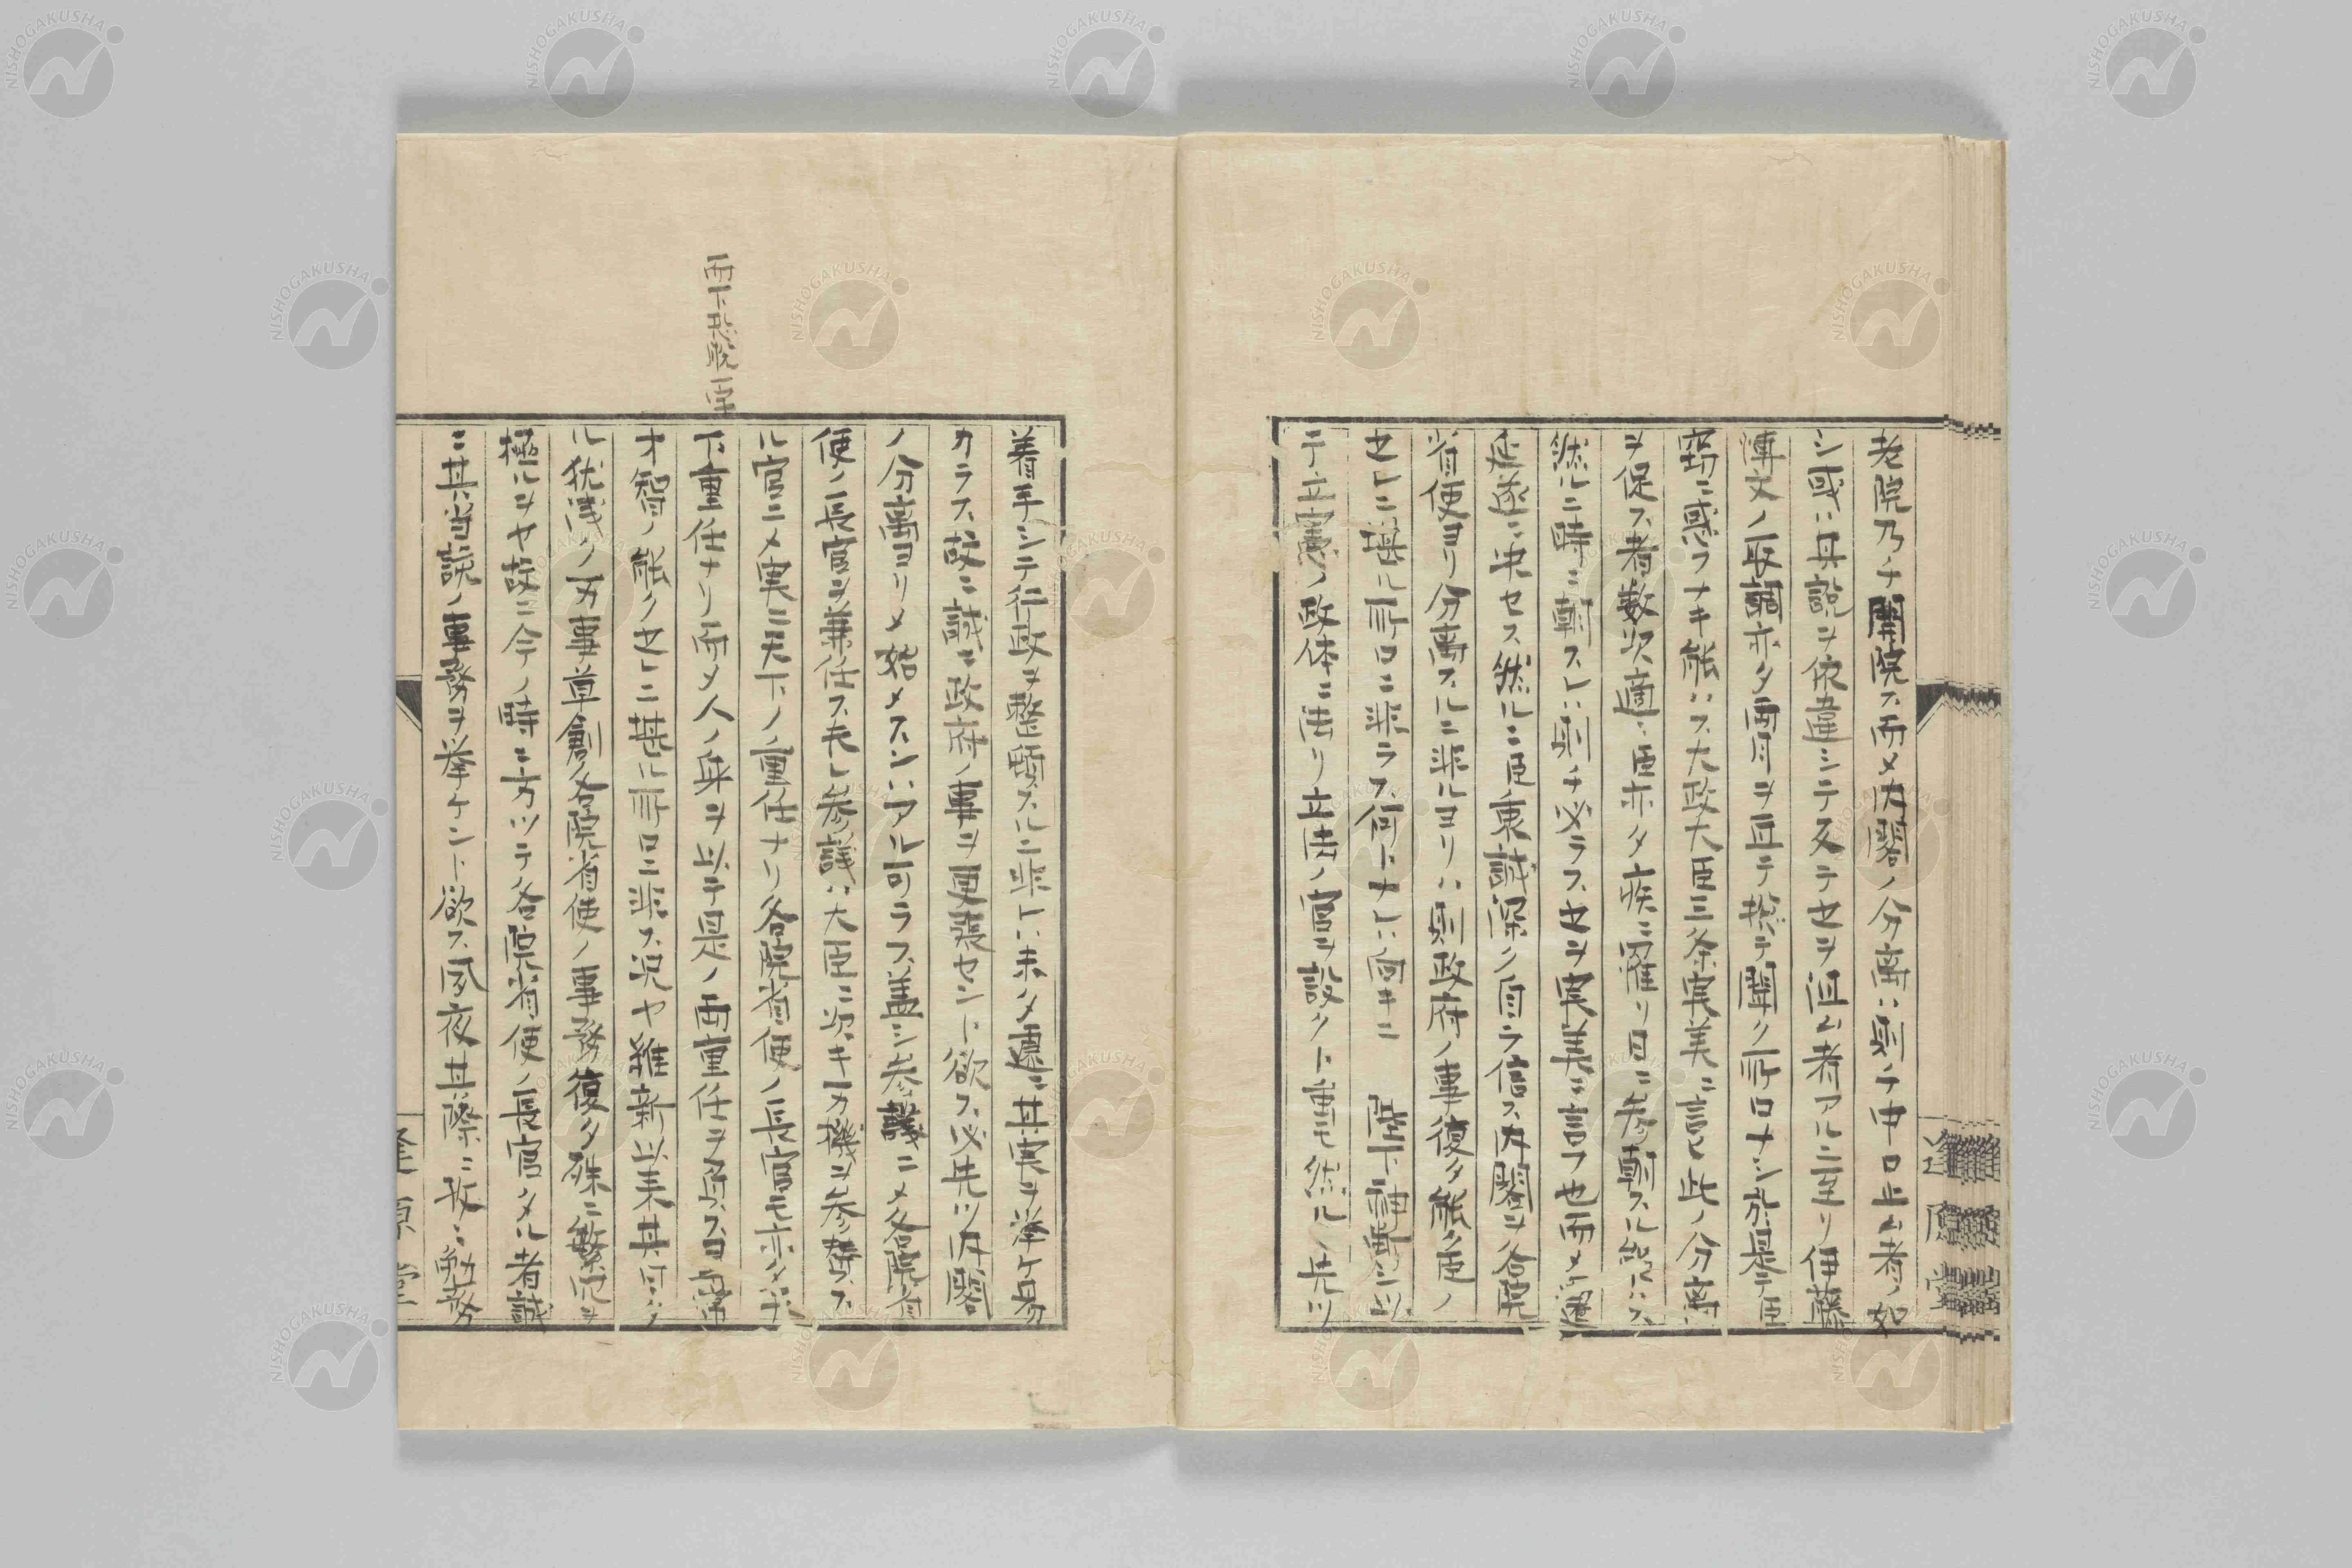 老院乃チ開院ス而メ内閣ノ分离ハ則チ中口止ム者ノ如
シ或ハ其説ヲ依違シテ反テ世ヲ沮ム者アルニ至リ伊藤
博文ノ取調亦タ両月ヲ亘テ聞ク所ロナシ於是乎臣
窃ニ惑フナキ能ハス大政大臣三条実美ニ言ヒ此ノ分离
ヲ促ス者数次適々臣亦タ疾ニ罹リ日ニ参朝スル能ハス
然ルニ時ニ朝スレハ則チ必ラス之ヲ実美ニ言フ也而メ遷
延遂ニ決セス然ルニ臣衷誠深ク自ラ信ス内閣ヲ各院
省使ヨリ分离スルニ非ルヨリハ則政府ノ事復タ能ク臣ノ
セレニ堪ル所ロニ非ラス何トナレハ向キニ 陛下神衷ヲ以
テ立憲ノ政体ニ法リ立法ノ官ヲ設クト雖モ然ルノ先ツ
着手シテ仁政ヲ整頓スルニ非レハ未タ遽ニ其実ヲ挙ケ易
カラス故ニ誠ニ政府ノ事ヲ更張セント欲ス必先ツ内閣
ノ分离ヨリメ始メスンハアル可ラス蓋シ参議ニメ各院省
使ノ長官ヲ兼任ス夫レ参議ハ大臣ニ次キ万機ヲ参替ス
ル官ニメ実ニ天下ノ重任ナリ各院省使ノ長官モ亦タ天
下重任ナリ而メ人ノ身ヲ以テ是ノ両重任ヲ負ス
才智ノ能クセレニ堪ル所ロニ非ス況ヤ維新以来其日
ル犹浅ク万事草創各院省使ノ事務復タ殊ニ繁冗ヲ
極ルヲヤ故ニ今ノ時ニ方ツテ各院省使ノ長官タル者誠
ニ其省院ノ事務ヲ挙ケント欲ス夙夜其際ニ孜々勉務
NISHOGAKUSHA